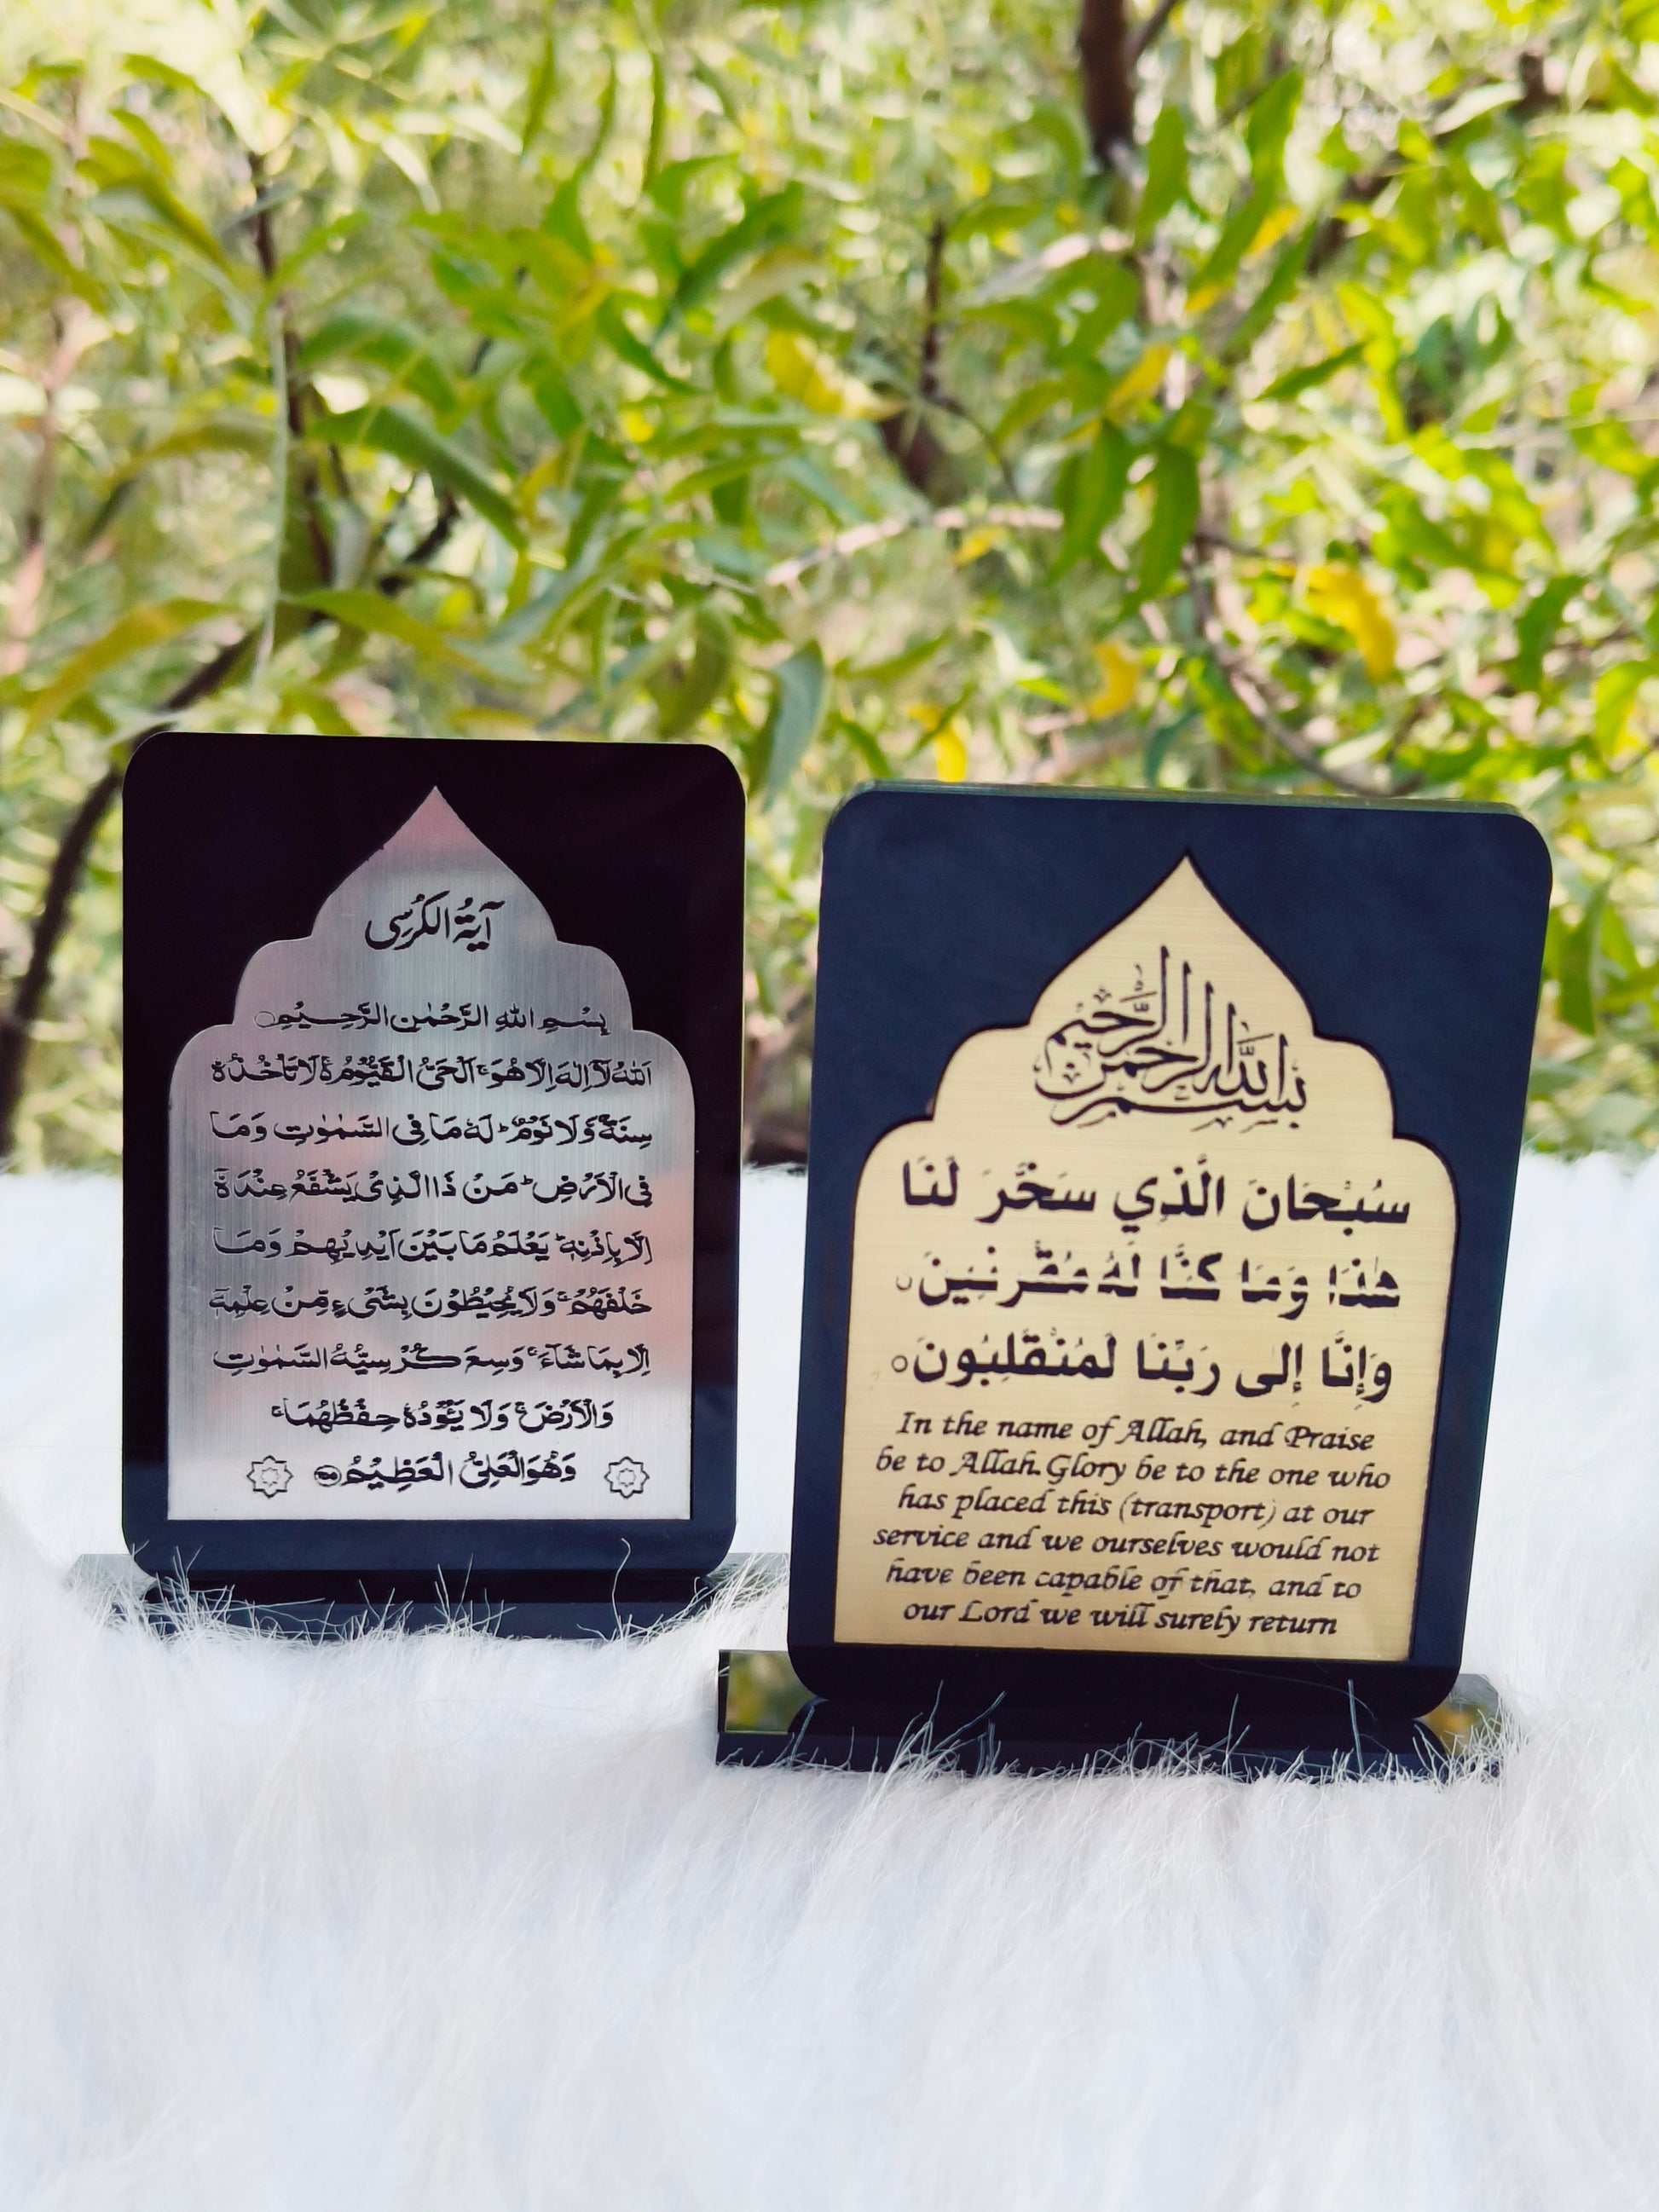 آيَةُ الْكُرْسِى
بِسْمِ اللهِ الرَّحْمٰنِ الرَّحِيْمِ○
اَللهُ لَآ اِلٰهَ اِلَّا هُوَ ۚ اَلْحَىُّ الْقَيُّوْمُ ۚ لَا تَاْخُذُهٗ
سِنَةٌ وَّلَا نَوْمٌ ؕ لَهٗ مَا فِى السَّمٰوٰتِ وَمَا
فِى الْاَرْضِ ؕ مَنْ ذَا الَّذِىْ يَشْفَعُ عِنْدَهٗٓ
اِلَّا بِاِذْنِهٖ ؕ يَعْلَمُ مَا بَيْنَ اَيْدِيْهِمْ وَمَا
خَلْفَهُمْ ۚ وَلَا يُحِيْطُوْنَ بِشَىْءٍ مِّنْ عِلْمِهٖٓ
اِلَّا بِمَا شَآءَ ۚ وَسِعَ كُرْسِيُّهُ السَّمٰوٰتِ
وَالْاَرْضَ ۚ وَلَا يَـُٔوْدُهٗ حِفْظُهُمَا ۚ
وَهُوَ الْعَلِىُّ الْعَظِيْمُ ﴿۲۵۵﴾
بسم الله الرحمن الرحيم
سُبْحَانَ الَّذِي سَخَّرَ لَنَا
هٰذَا وَمَا كُنَّا لَهُ مُقْرِنِينَ
وَإِنَّا إِلَى رَبِّنَا لَمُنْقَلِبُونَ○
In the name of Allah, and Praise
be to Allah. Glory be to the one who
has placed this (transport) at our
service and we ourselves would not
have been capable of that, and to
our Lord we will surely return